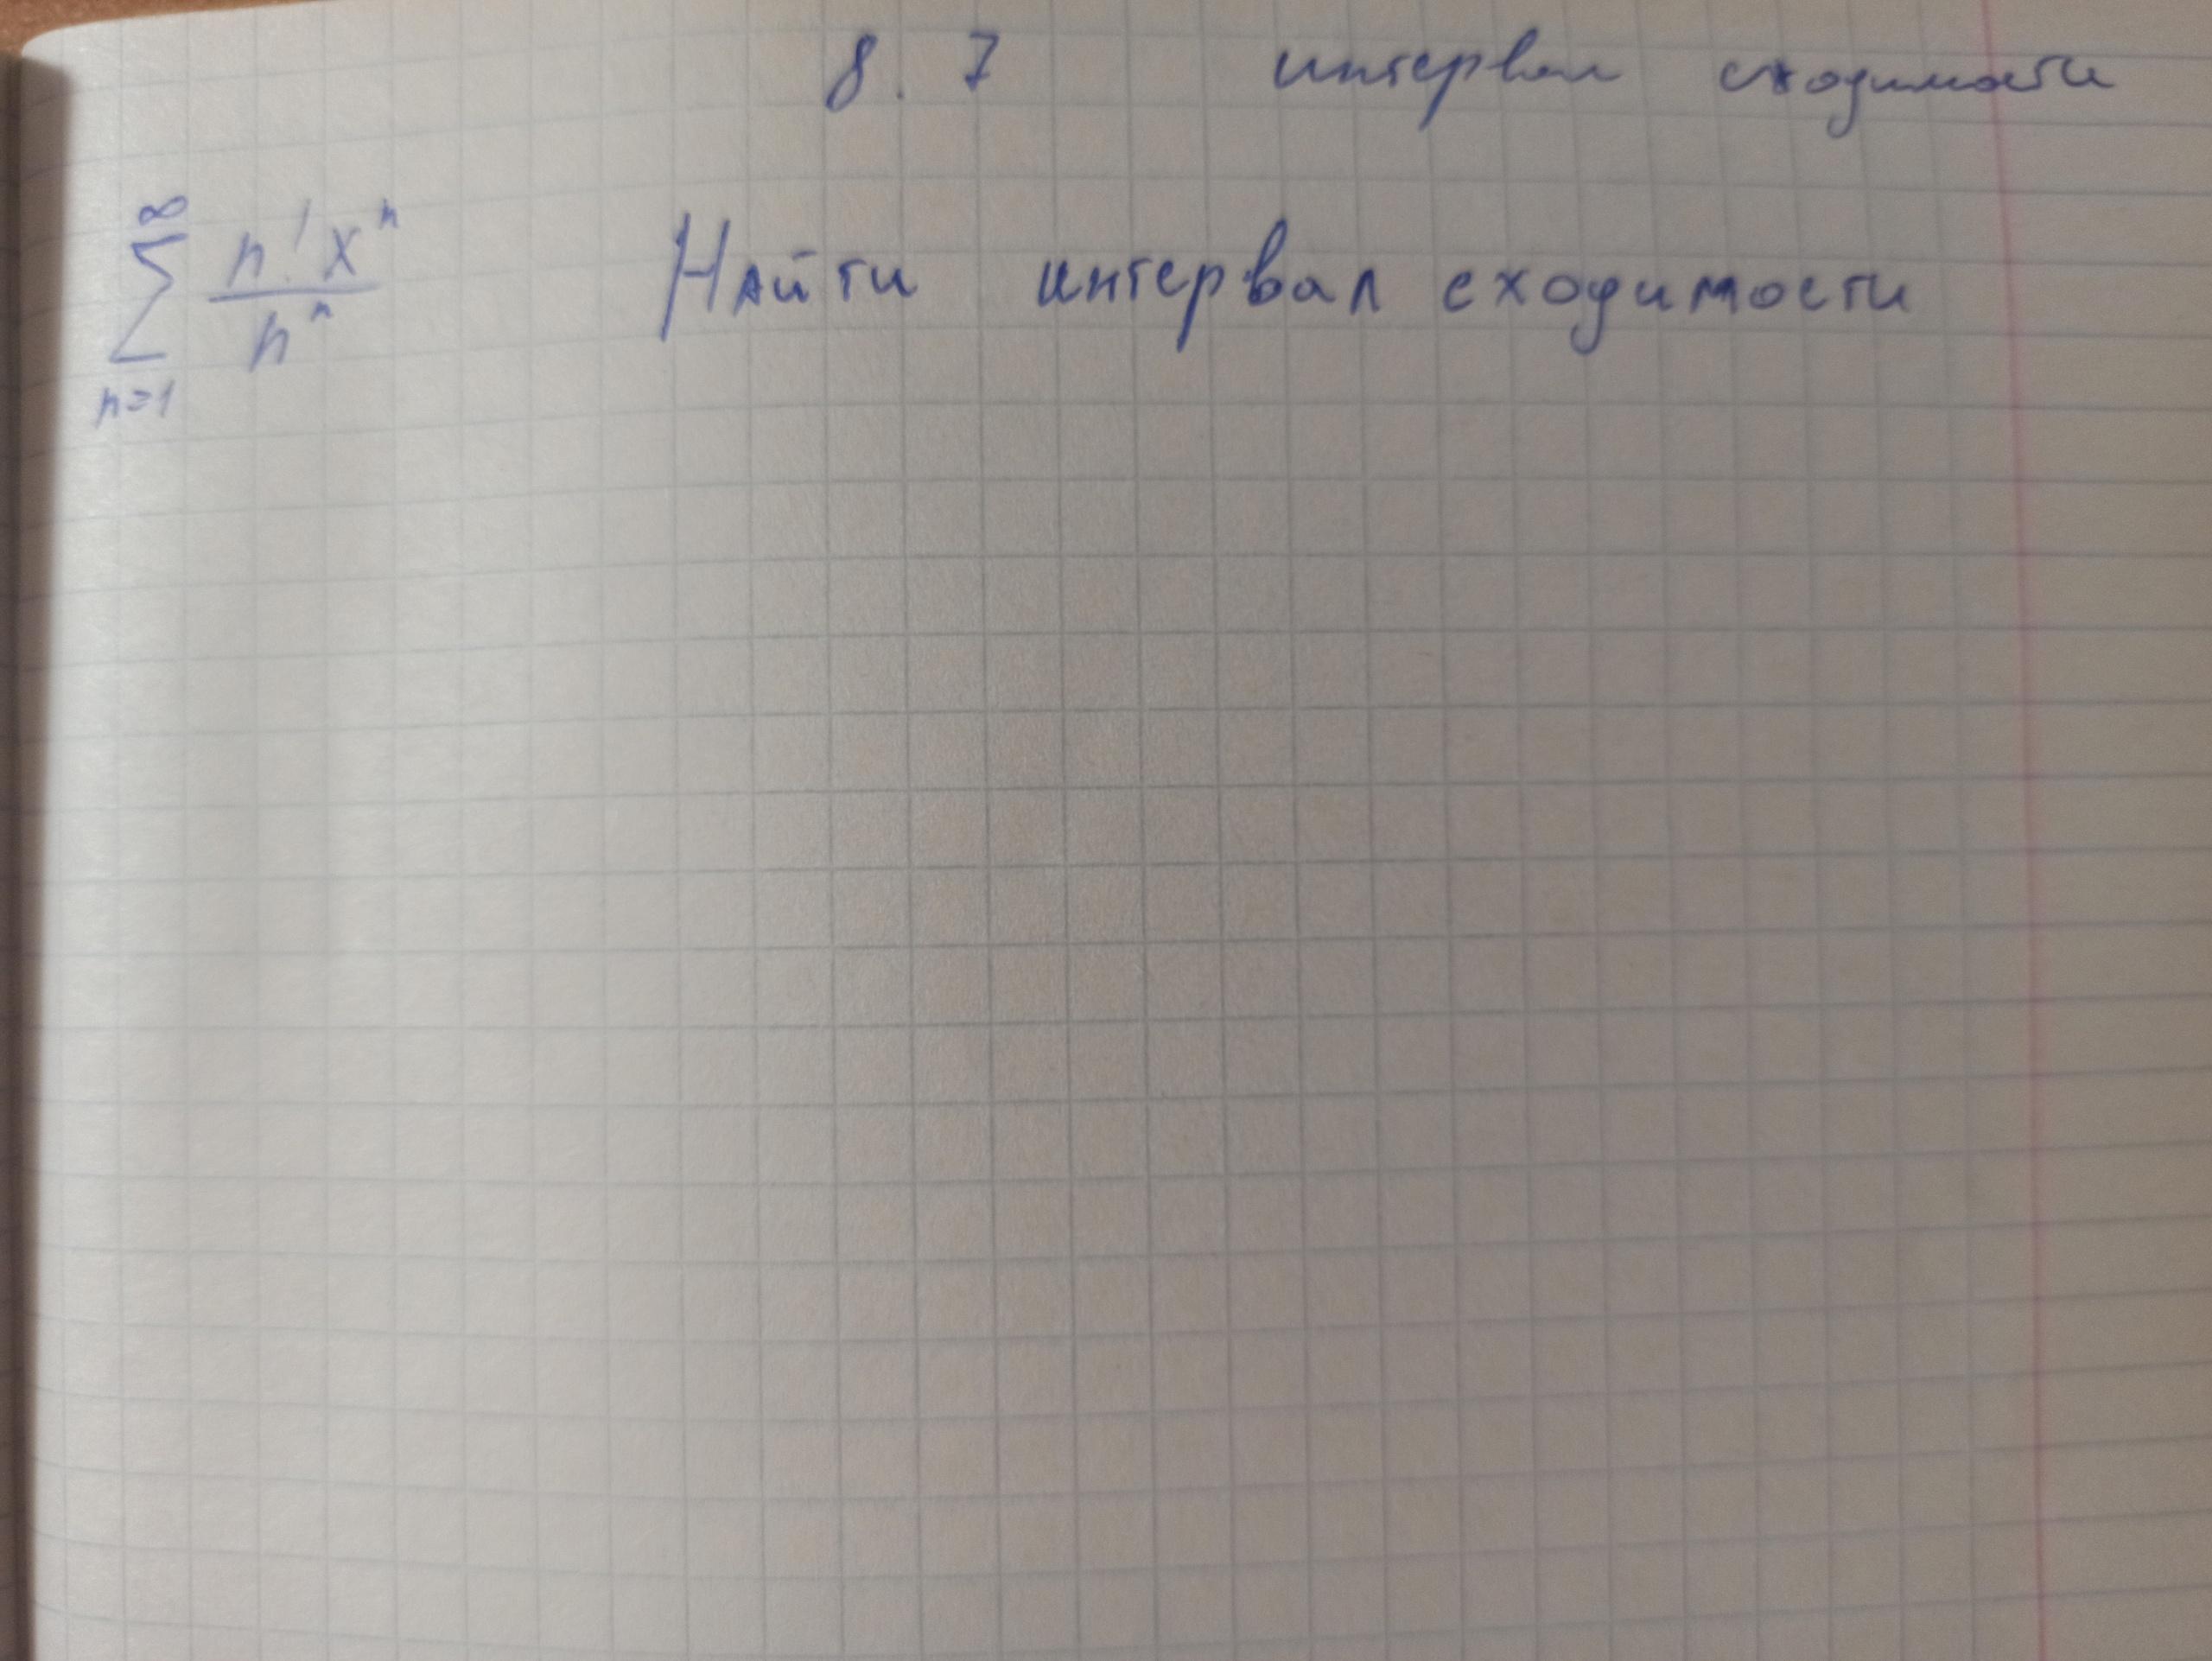 8.7 интервал сходимости
∞
∑ n! xⁿ / nⁿ Найти интервал сходимости
n=1